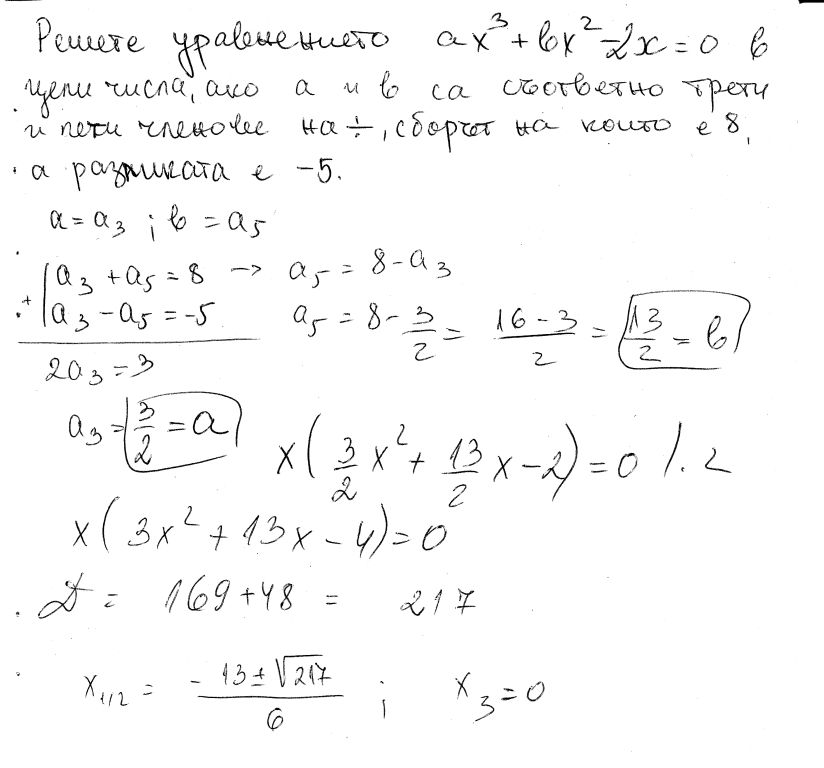 Решете уравнението ax³+bx²-2x=0 в
цели числа, ако a и b са съответно трети
и пети членове на ÷, сборът на които е 8,
а разликата е -5.
a=a₃ ; b=a₅
a₃+a₅=8 → a₅=8-a₃
+ a₃-a₅=-5 a₅=8-3/2= (16-3)/2 = 13/2=b
2a₃=3
a₃=3/2=a
x(3/2x²+13/2x-2)=0 /.2
x(3x²+13x-4)=0
D= 169+48 = 217
x₁/₂= (-13±√217)/6 ; x₃=0